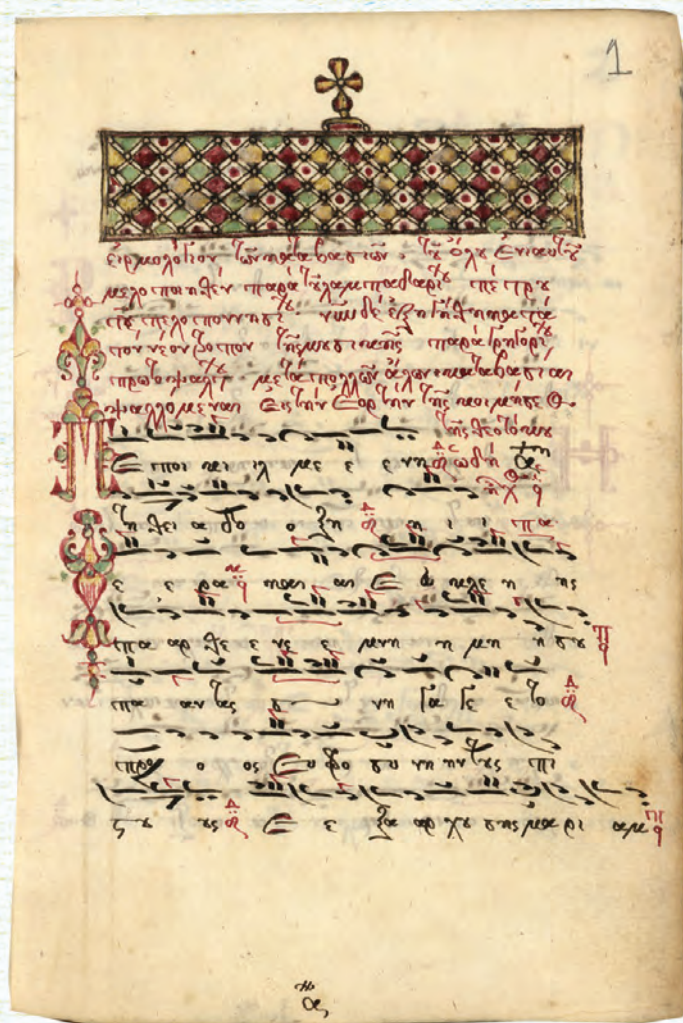 1
εἱρμολόγιον τῶν καταβασιῶν, τοῦ ὅλου ἐνιαυτοῦ
μελοποιηθὲν παρὰ τοῦ λαμπαδαρίου πέτρου
τοῦ πελοποννησίου· νῦν δὲ ἐξηγήθη κατὰ
τὸν νέον τρόπον τῆς μουσικῆς παρὰ γρηγορίου
πρωτοψάλτου μετὰ πολλῶν ἄλων καταβασιαι
ψαλλόμεναι Εἰς τὴν Ἑορτὴν τῆς κοιμήσεως
τῆς θεοτόκου
Π Ε ποι κι ιλ με ε ε νη ὠδὴ α
ἦχ
τη θει α δο ο ξη η ι ι πα
ε ε ρα και αι Ε υ κλε η ης
πα αρ θε ε νε ε μνη η μη η σου
πα αντας συ νη γα γε ε το
προ ο ος Ευ φρο συ νην τους πι
ς ου ους Ε ε ξα αρ χου σης μα ρι αμ
α